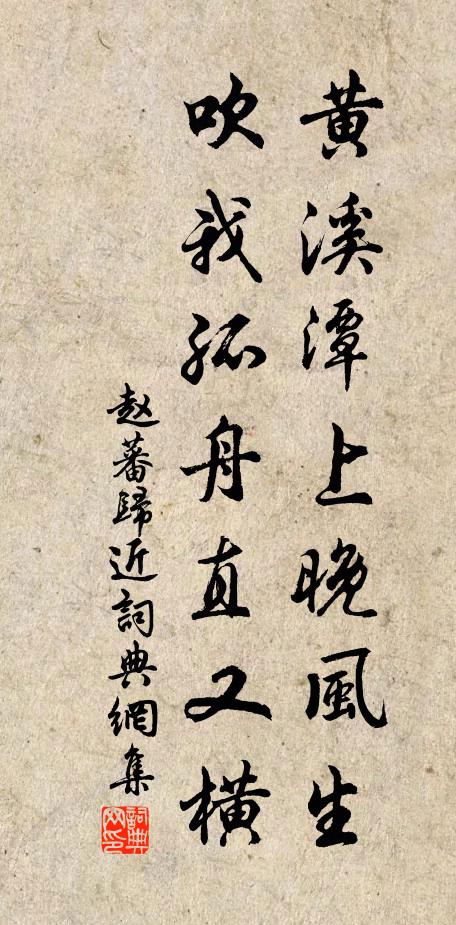 黄溪潭上晚風生
吹我孤舟直又橫
赵蕃歸近詞典網集
詞典
网印